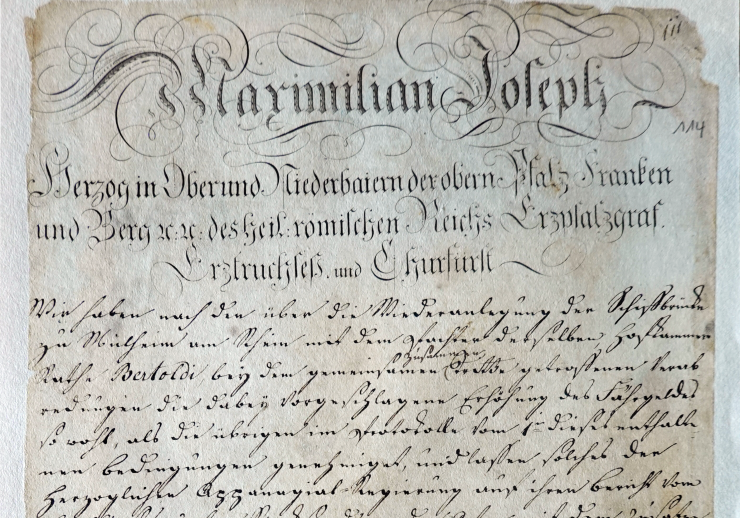 iii
Maximilian Joseph
114
Herzog in Ober und Niederbaiern der obern Pfalz Franken
und Berg ꝛc: ꝛc: des heil: römischen Reichs Erzpfalzgraf.
Erztruchseß und Churfürst
Wir haben nach den über die Wiederanlegung der Schiffbrücke
zu Mülheim am Rhein mit dem Pachter derselben, Hofkammer
Rathe Bertoldi, bey dem gemeinsamen
getroffenen Verab
redungen die dabey vorgeschlagene Erhöhung des Fährgeldes
so wohl, als die übrigen im Protokolle vom 1ten dieses enthalte
nen Bedingungen genehmiget, und lassen solches der
Herzoglichen Appanagial-Regierung auf ihren Bericht vom